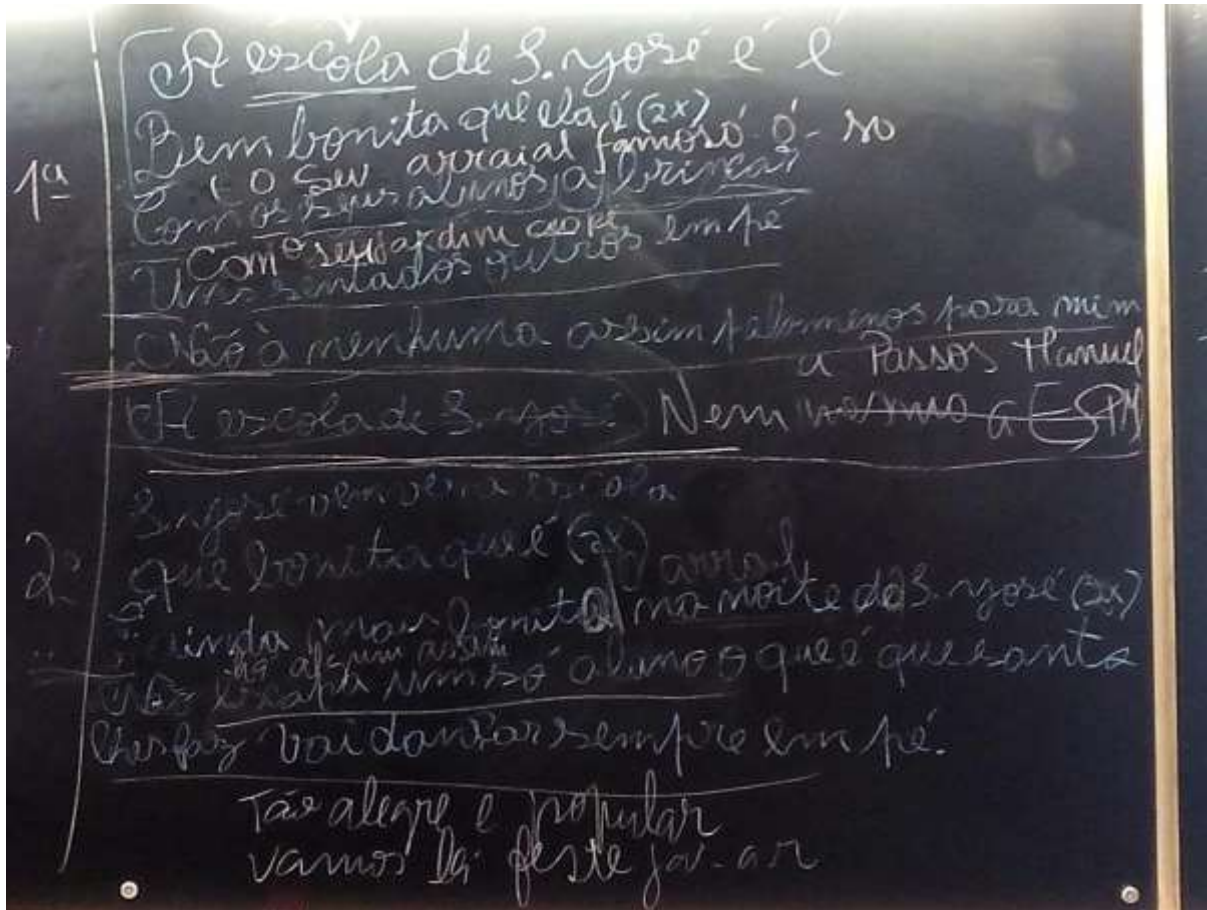 A escola de S. José é é
Bem bonita que ela é (2x)
1ª
E o seu arraial famosó-ó-so
Com os seus alunos a brincar
Com o seu jardim
Uns sentados outros em pé
Não à nenhuma assim pelo menos para mim
a Passos Manuel
A escola de S. José Nem mesmo a ESPM
S. José vem ver a escola
2ª
Que bonita que é (2x)
arraial
inda mais bonita na noite do S. José (2x)
há algum assim
um só aluno o que é que santo
lhes faz vai dançar sempre em pé.
Tão alegre e popular
vamos lá festeja-ar